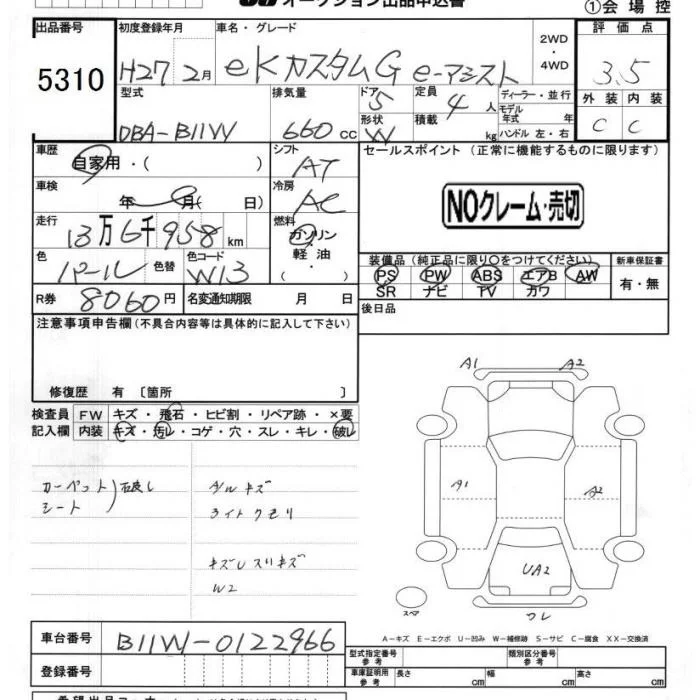 オークション出品申込書
①会場控
出品番号
5310
初度登録年月
H27 2月
車名・グレード
eKカスタムG e-アシスト
2WD
・
4WD
評価点
3.5
型式
DBA-B11W
排気量
660cc
ドア
5
形状
W
定員
4人
積載
kg
ディーラー・並行
モデル
年式 年
ハンドル 左・右
外装 内装
C C
車歴
自家用・( )
シフト
AT
車検
年 月( 日)
冷房
AC
走行
13万6千958km
燃料
ガソリン
軽油
・
色
パール
色替
色コード
W13
R券 8060円
名変通知期限 月 日
セールスポイント (正常に機能するものに限ります)
NOクレーム・売切
装備品 (純正品に限り○をつけてください)
PS PW ABS エアB AW
SR ナビ TV カワ
新車保証書
有・無
後日品
注意事項申告欄(不具合内容等は具体的に記入して下さい)
修復歴 有 〔箇所 〕
検査員
記入欄
FW キズ・飛石・ヒビ割・リペア跡・×要
内装 キズ・汚レ・コゲ・穴・スレ・キレ・破レ
カーペット
シート
破レ
ライトクモリ
W2
A1 A2
A1 A2
UA2
スペア
ワレ
A-キズ E-エクボ U-凹み W-補修跡 S-サビ C-腐食 XX-交換済
車台番号 B11W-0122966
登録番号
型式指定番号
参考
類別区分番号
参考
車庫証明用
参考
長さ cm 幅 cm 高さ cm